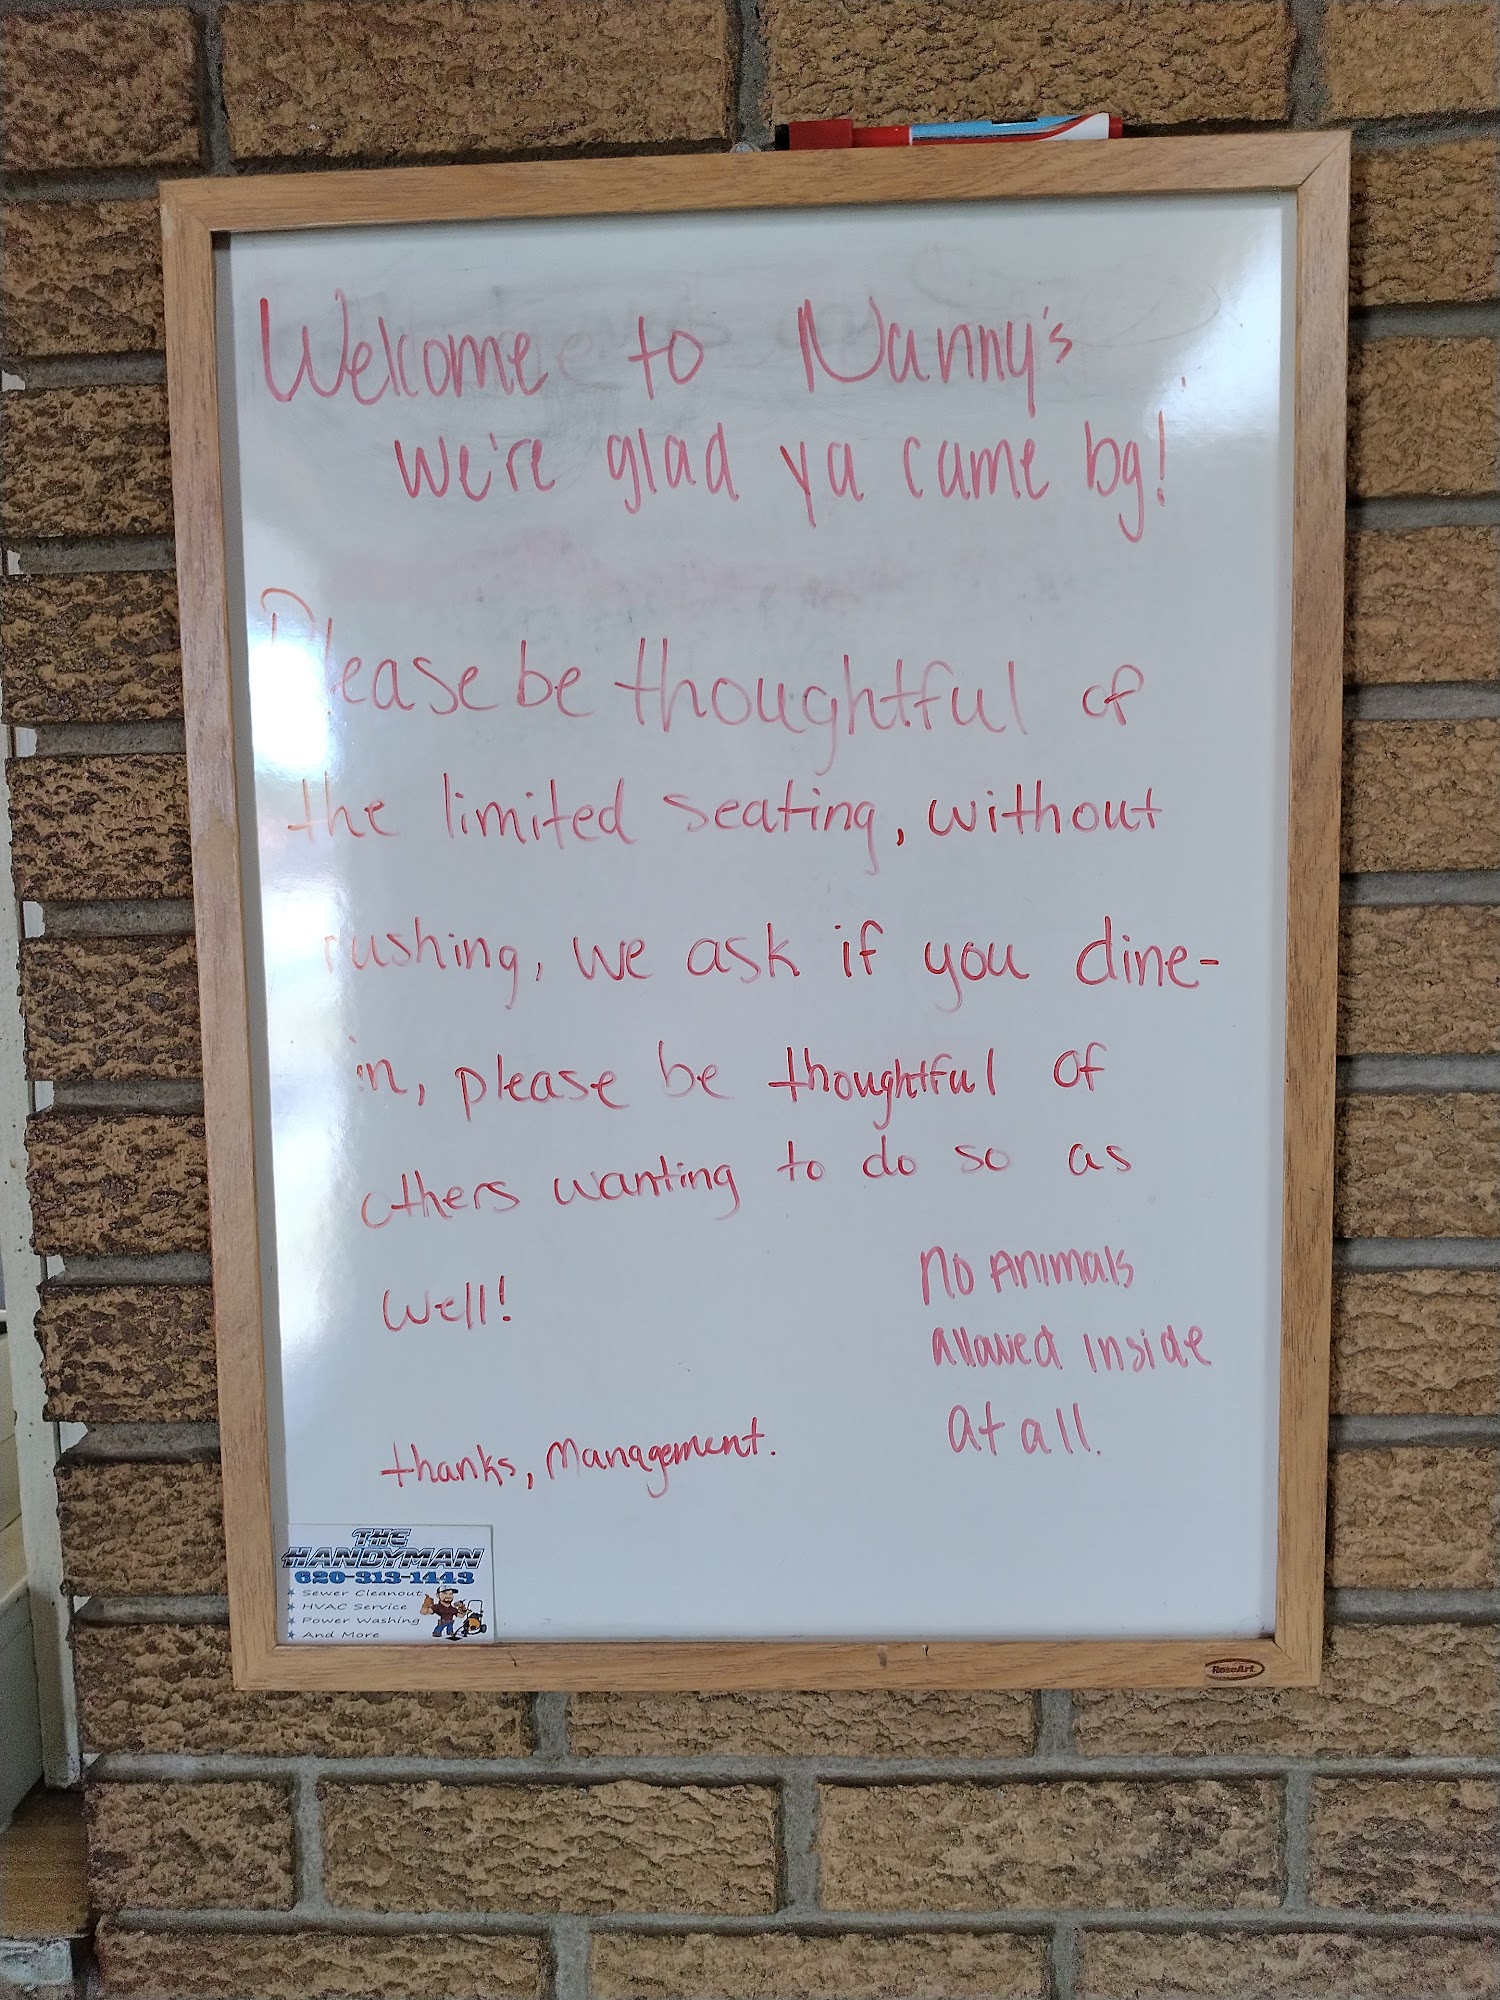 Welcome to Nanny's
we're glad ya came by!
Please be thoughtful of
the limited seating, without
rushing, we ask if you dine-
in, please be thoughtful of
others wanting to do so as
well!
No Animals
allowed inside
at all.
thanks, Management.
THE
HANDYMAN
620-313-1443
★ Sewer Cleanout
★ HVAC Service
★ Power Washing
★ And More
RoseArt